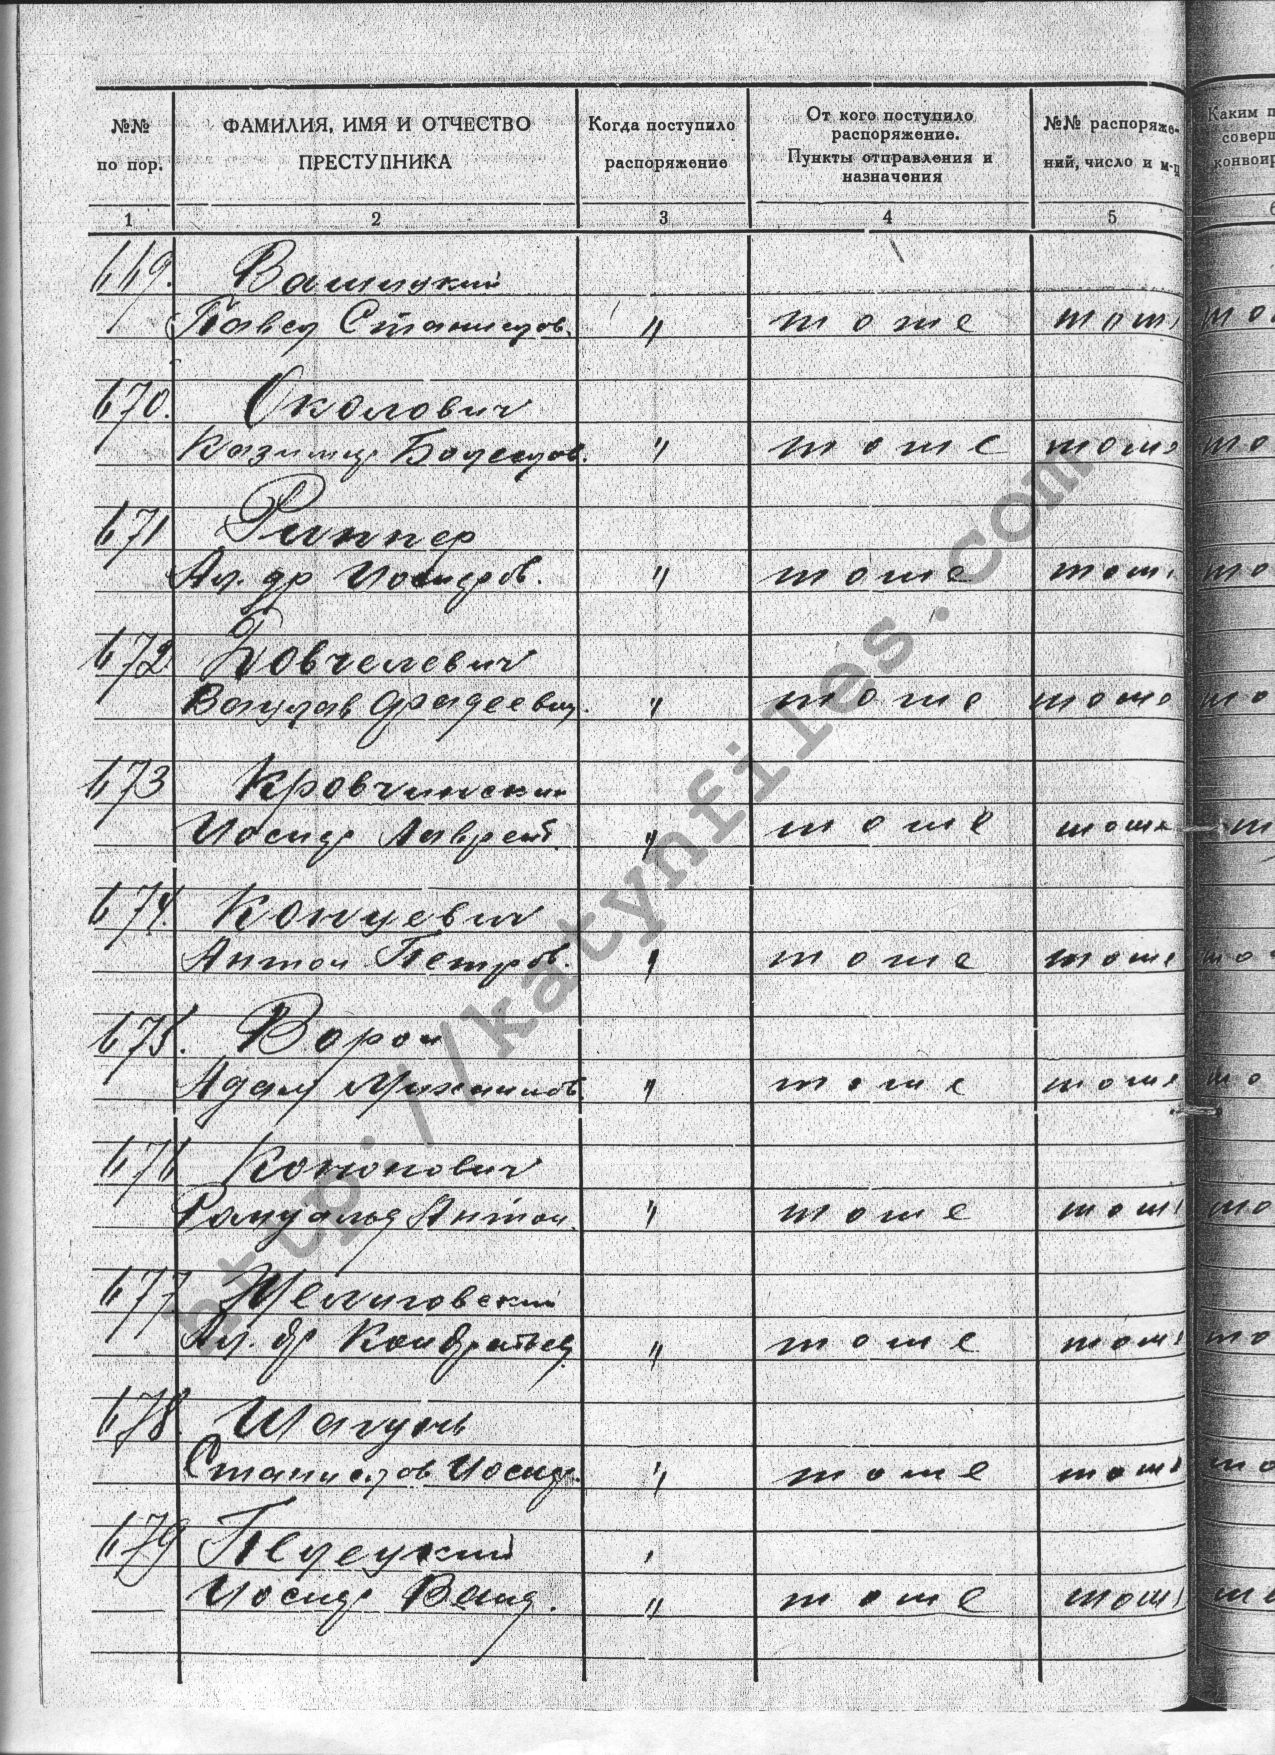 №№ по пор.
ФАМИЛИЯ, ИМЯ И ОТЧЕСТВО ПРЕСТУПНИКА
Когда поступило распоряжение
От кого поступило распоряжение. Пункты отправления и назначения
№№ распоряже- ний, число и м-ц
Каким п
соверш
конвоир
1 2 3 4 5 6
669. Вашицкий
Павел Станислов. " тоже тоже то
670. Околович
Казимир Болеслов. " тоже тоже то
671 Риппер
Ал-др Иосифов. " тоже тоже то
672 Бовчелевич
Вацлав Фадеевич. " тоже тоже то
673 Кровчинский
Иосиф Лаврент. " тоже тоже т
674. Концевич
Антон Петров. " тоже тоже то
675. Ворон
Адам Михайлов. " тоже тоже то
676 Кононович
Ромуальд Антон. " тоже тоже то
677 Желиговский
Ал-др Кондратьев. " тоже тоже то
678. Шагунь
Станислов Иосиф. " тоже тоже то
679 Пелецкий
Иосиф Венд. " тоже тоже то
http://katynfiles.com